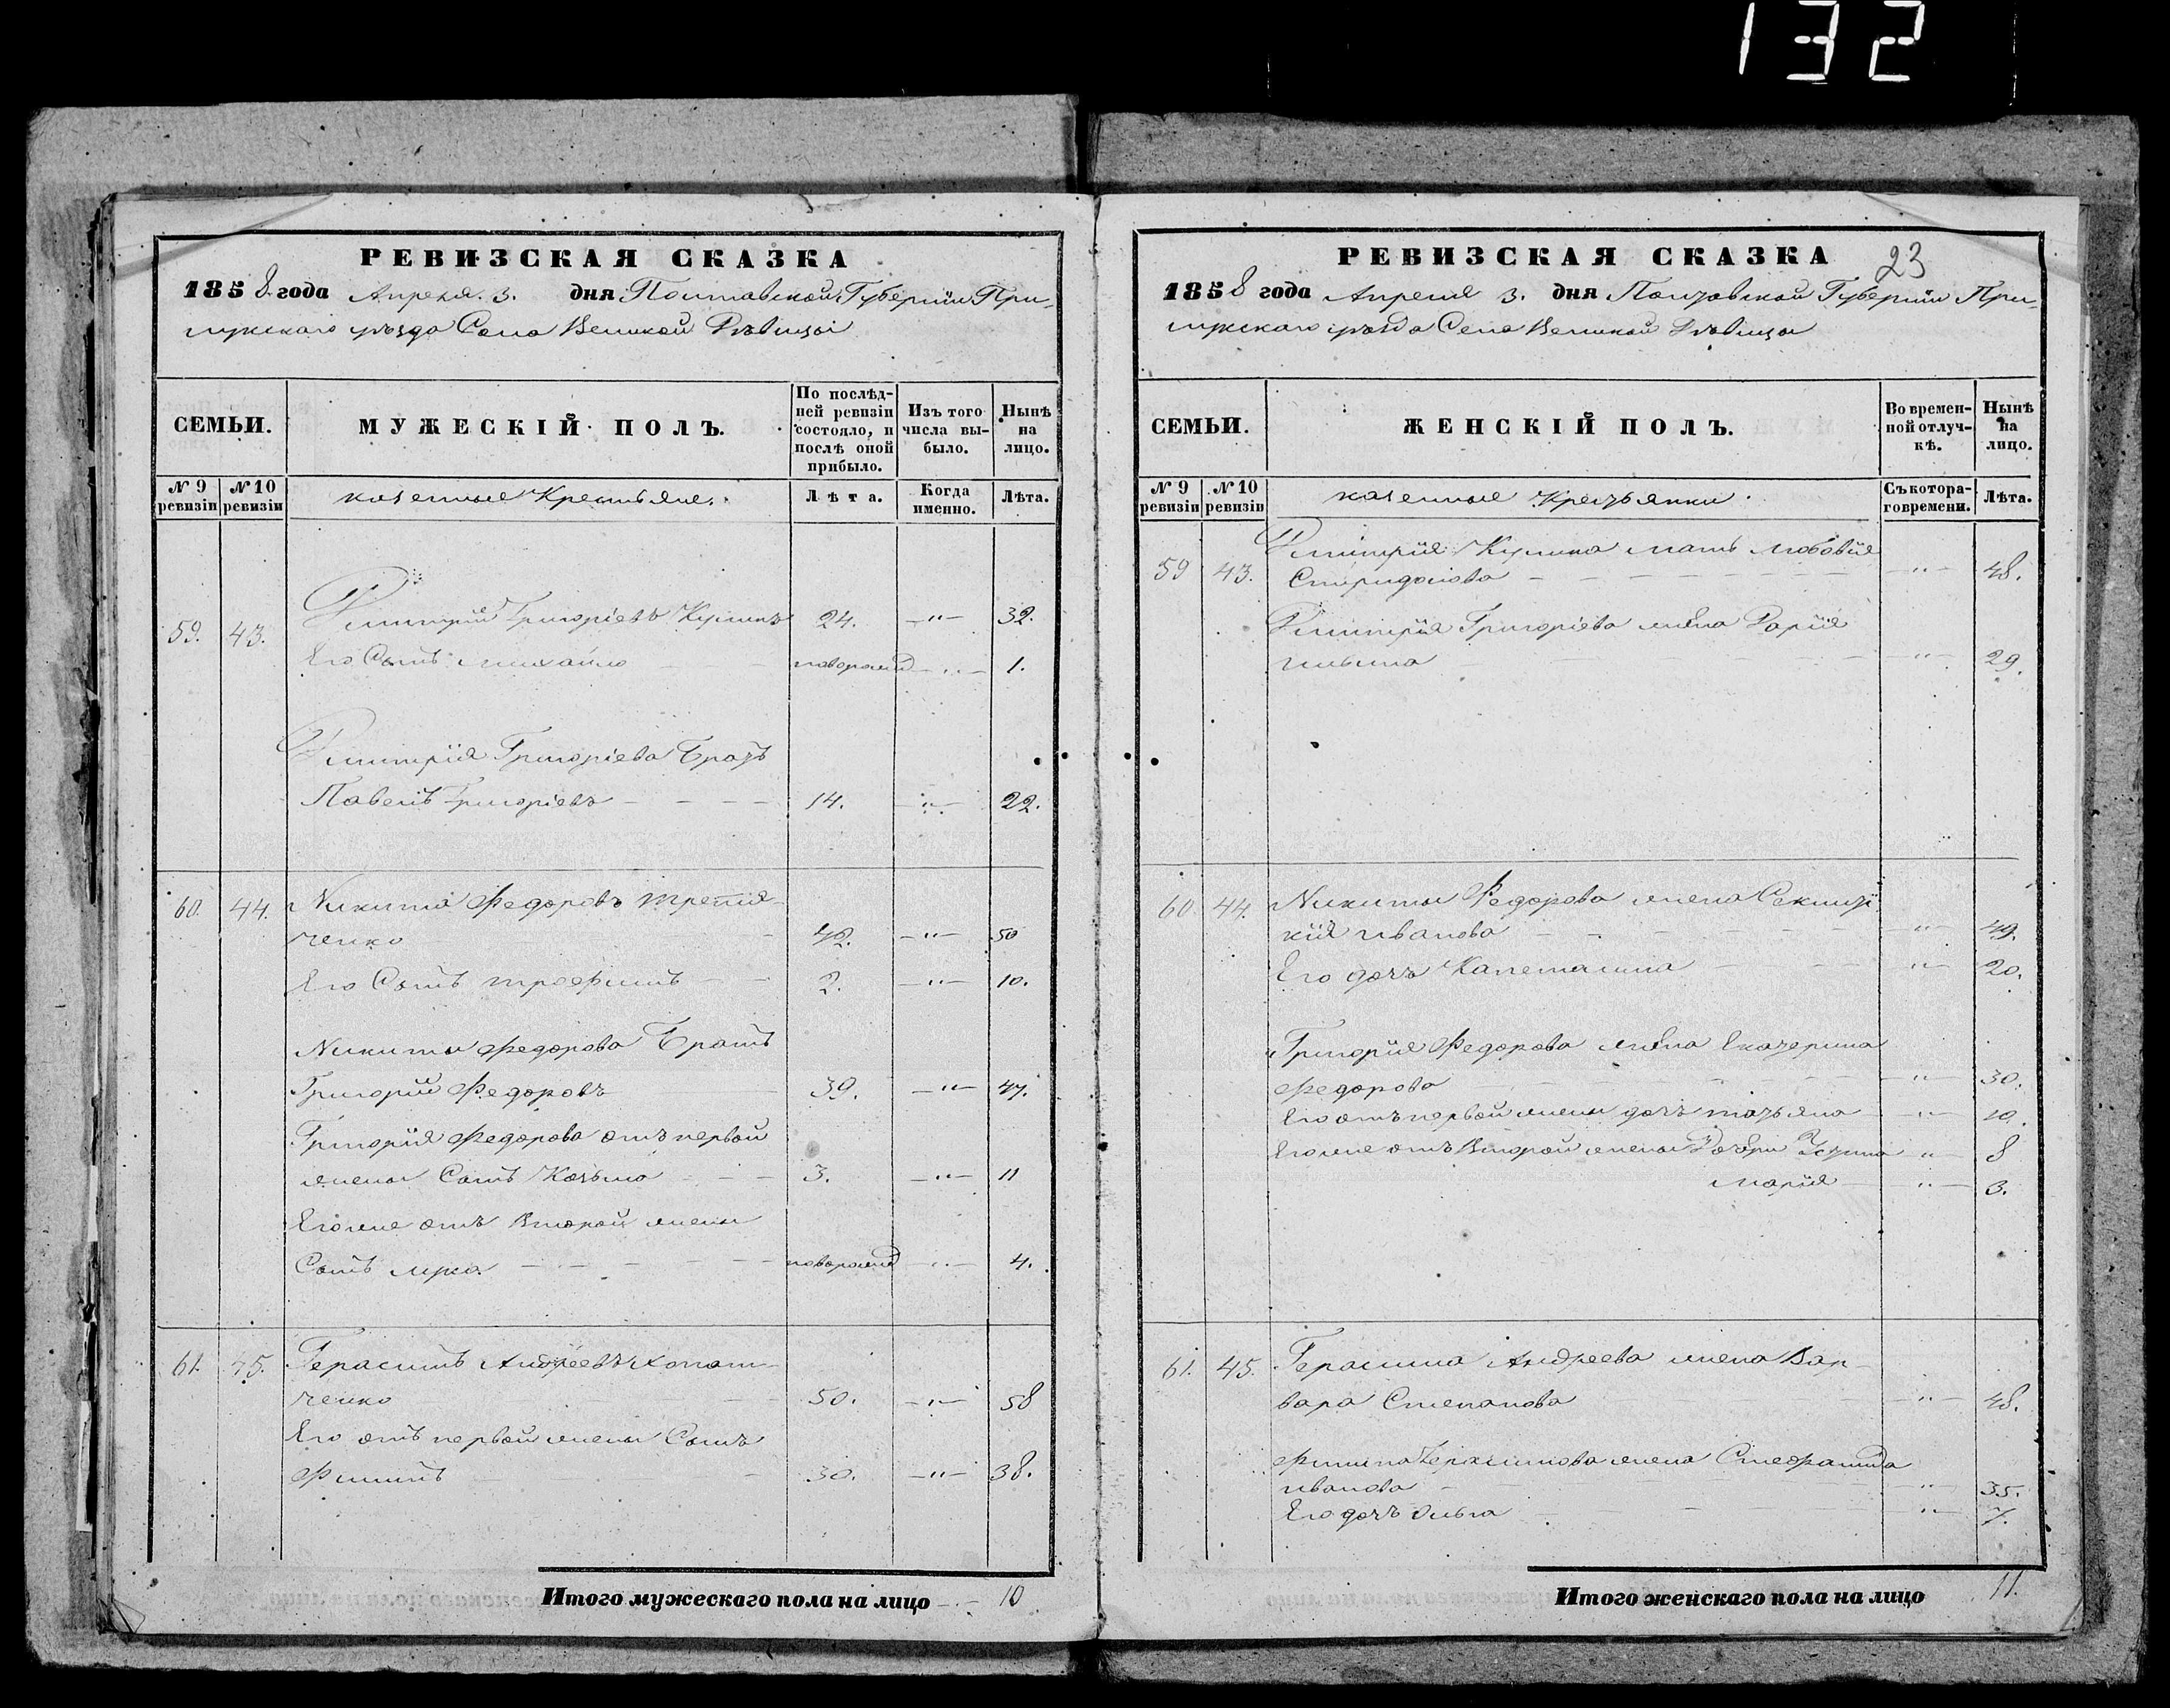 132
РЕВИЗСКАЯ СКАЗКА
1858 года Апреля 3. дня Полтавской Губернiи При-
лужскаго уѣзда Села Великой Дѣвицы
СЕМЬИ.
МУЖЕСКІЙ ПОЛЪ.
По послѣд-
ней ревизіи
состояло, и
послѣ оной
прибыло.
Изъ того
числа вы-
было.
Нынѣ
на
лицо.
№ 9 ревизіи
№ 10 ревизіи
казенные Крестьяне.
Лѣта.
Когда
именно.
Лѣта.
59. 43. Димитрій Григоріевъ Кулик 24. —"— 32.
Его Сынъ Михайло — новорожд —"— 1.
Димитрія Григоріева Братъ
Павелъ Григоріевъ — — — 14. —"— 22.
60. 44. Никита Федоровъ Третия-
ченко — 42. —"— 50
Его Сынъ Трофимъ — — 2. —"— 10.
Никиты Федорова Братъ
Григорій Федоровъ — 39. —"— 47.
Григорія Федорова отъ первой
жены Сынъ Козьма — — 3. —"— 11
Его же отъ Второй жены
Сынъ Лука — — — — новорожд —"— 4.
61. 45. Герасимъ Андреевъ
ченко — — 50. —"— 58
Его отъ первой жены Сынъ
Филипъ — 30. —"— 38.
Итого мужескаго пола на лицо — 10
23
РЕВИЗСКАЯ СКАЗКА
1858 года Апреля 3. дня Полтавской Губернiи При-
лужскаго уѣзда Села Великой Дѣвицы
СЕМЬИ.
ЖЕНСКІЙ ПОЛЪ.
Во времен-
ной отлуч-
кѣ.
Нынѣ
на
лицо.
№ 9 ревизіи
№ 10 ревизіи
казенные Крестьянки.
Съ котора-
го времени.
Лѣта.
59 43. Димитрія Кулика мать Любовія
Спиридонова — — — —"— 48.
Димитрія Григоріева жена Дарія
Ильина — —"— 29.
60. 44. Никиты Федорова жена
Иванова — — —"— 49.
Его дочь Капеталина — —"— 20.
Григорія Федорова жена Екатерина
Федорова — —"— 30.
Его отъ первой жены дочь Татьяна —"— 10.
Его же отъ Второй жены Дочери Устина " 8
Марія —"— 3.
61. 45. Герасима Андреева жена Вар-
вара Степанова — —"— 48.
Филипа Герасимова жена Стефанида
Иванова — —"— 35.
Его дочь Ольга — —"— 7.
Итого женскаго пола на лицо 11.